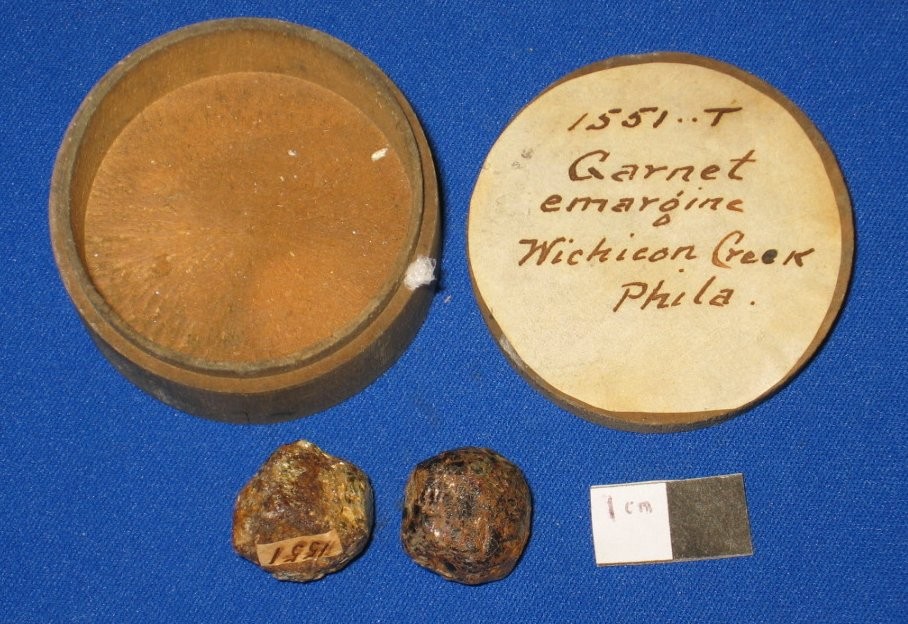 1551..T
Garnet
emargine
Wichicon Creek
Phila.
1551
1 cm